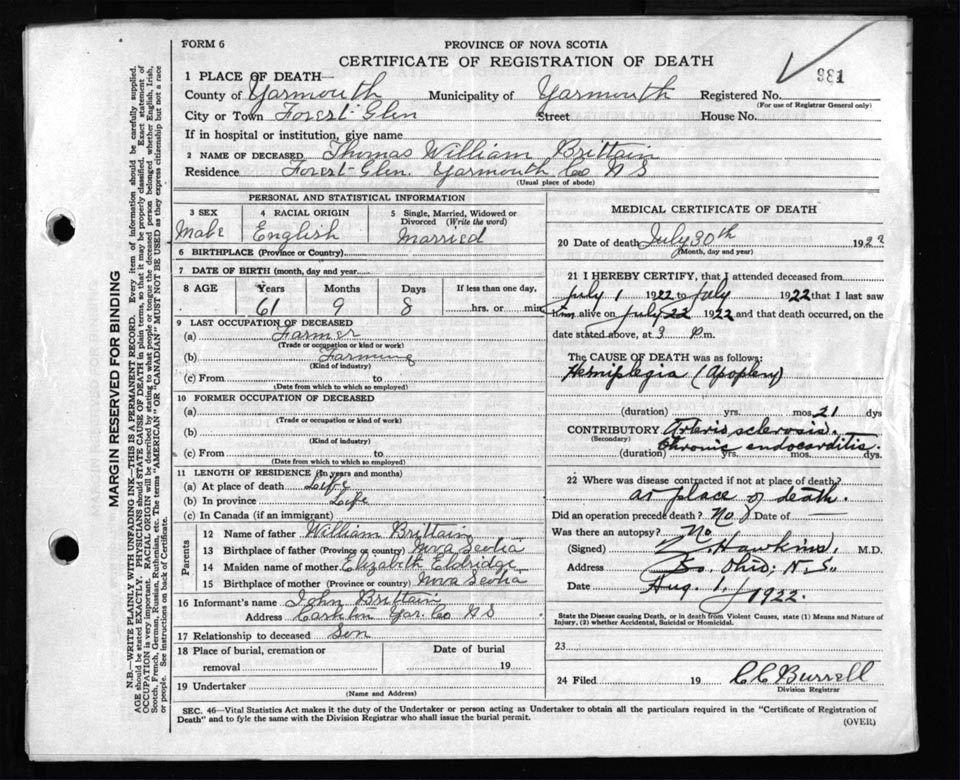 FORM 6
PROVINCE OF NOVA SCOTIA
CERTIFICATE OF REGISTRATION OF DEATH
981
1 PLACE OF DEATH—
County of Yarmouth Municipality of Yarmouth Registered No.
(For use of Registrar General only)
City or Town Forest Glen Street House No.
If in hospital or institution, give name
2 NAME OF DECEASED Thomas William Brittain
Residence Forest Glen. Yarmouth Co N S
(Usual place of abode)
PERSONAL AND STATISTICAL INFORMATION
3 SEX 4 RACIAL ORIGIN 5 Single, Married, Widowed or Divorced (Write the word)
Male English Married
6 BIRTHPLACE (Province or Country)
7 DATE OF BIRTH (month, day and year
8 AGE Years Months Days If less than one day,
61 9 8 hrs. or min
9 LAST OCCUPATION OF DECEASED
(a) Farmer
(Trade or occupation or kind or work)
(b) Farming
(Kind of industry)
(c) From to
(Date from which to which so employed)
10 FORMER OCCUPATION OF DECEASED
(a)
(Trade or occupation or kind of work)
(b)
(Kind of industry)
(c) From to
(Date from which to which so employed)
11 LENGTH OF RESIDENCE (in years and months)
(a) At place of death Life
(b) In province Life
(c) In Canada (if an immigrant)
Parents
12 Name of father William Brittain
13 Birthplace of father (Province or country) Nova Scotia
14 Maiden name of mother Elizabeth Eldridge
15 Birthplace of mother (Province or country) Nova Scotia
16 Informant's name John Brittain
Address Yar. Co N S
17 Relationship to deceased Son
18 Place of burial, cremation or Date of burial
removal 19
19 Undertaker
(Name and Address)
MEDICAL CERTIFICATE OF DEATH
20 Date of death July 30th 1922
(Month, day and year)
21 I HEREBY CERTIFY, that I attended deceased from
July 1 1922 to July 1922 that I last saw
him alive on July 22 1922 and that death occurred, on the
date stated above, at 3 p m.
The CAUSE OF DEATH was as follows:
Hemiplegia (Apoplexy)
(duration) yrs. mos 21 dys
CONTRIBUTORY Arterio sclerosis.
(Secondary) Chronic endocarditis.
(duration) yrs. mos. dys
22 Where was disease contracted if not at place of death?
at place of death.
Did an operation precede death? No Date of —
Was there an autopsy? No
(Signed) Hawkins, M.D.
Address So. Ohio, N.S.
Date Aug. 1, 1922.
State the Disease causing Death, or in death from Violent Causes, state (1) Means and Nature of
Injury, (2) whether Accidental, Suicidal or Homicidal.
23
24 Filed 19 C C Burrell
Division Registrar
SEC. 46—Vital Statistics Act makes it the duty of the Undertaker or person acting as Undertaker to obtain all the particulars required in the "Certificate of Registration of
Death" and to fyle the same with the Division Registrar who shall issue the burial permit.
(OVER)
MARGIN RESERVED FOR BINDING
N.B.—WRITE PLAINLY WITH UNFADING INK.—THIS IS A PERMANENT RECORD. Every item of information should be carefully supplied.
AGE should be stated EXACTLY. PHYSICIANS should STATE CAUSE OF DEATH in plain terms, so that it may be properly classified. Exact statement of
OCCUPATION is very important. RACIAL ORIGIN will be described by stating to what people or tongue the deceased person belonged whether English, Irish,
Scotch, French, German, Russian, Ruthenian, etc. The terms "AMERICAN" OR "CANADIAN" MUST NOT BE USED as they express citizenship but not a race
or people. See instructions on back of Certificate.